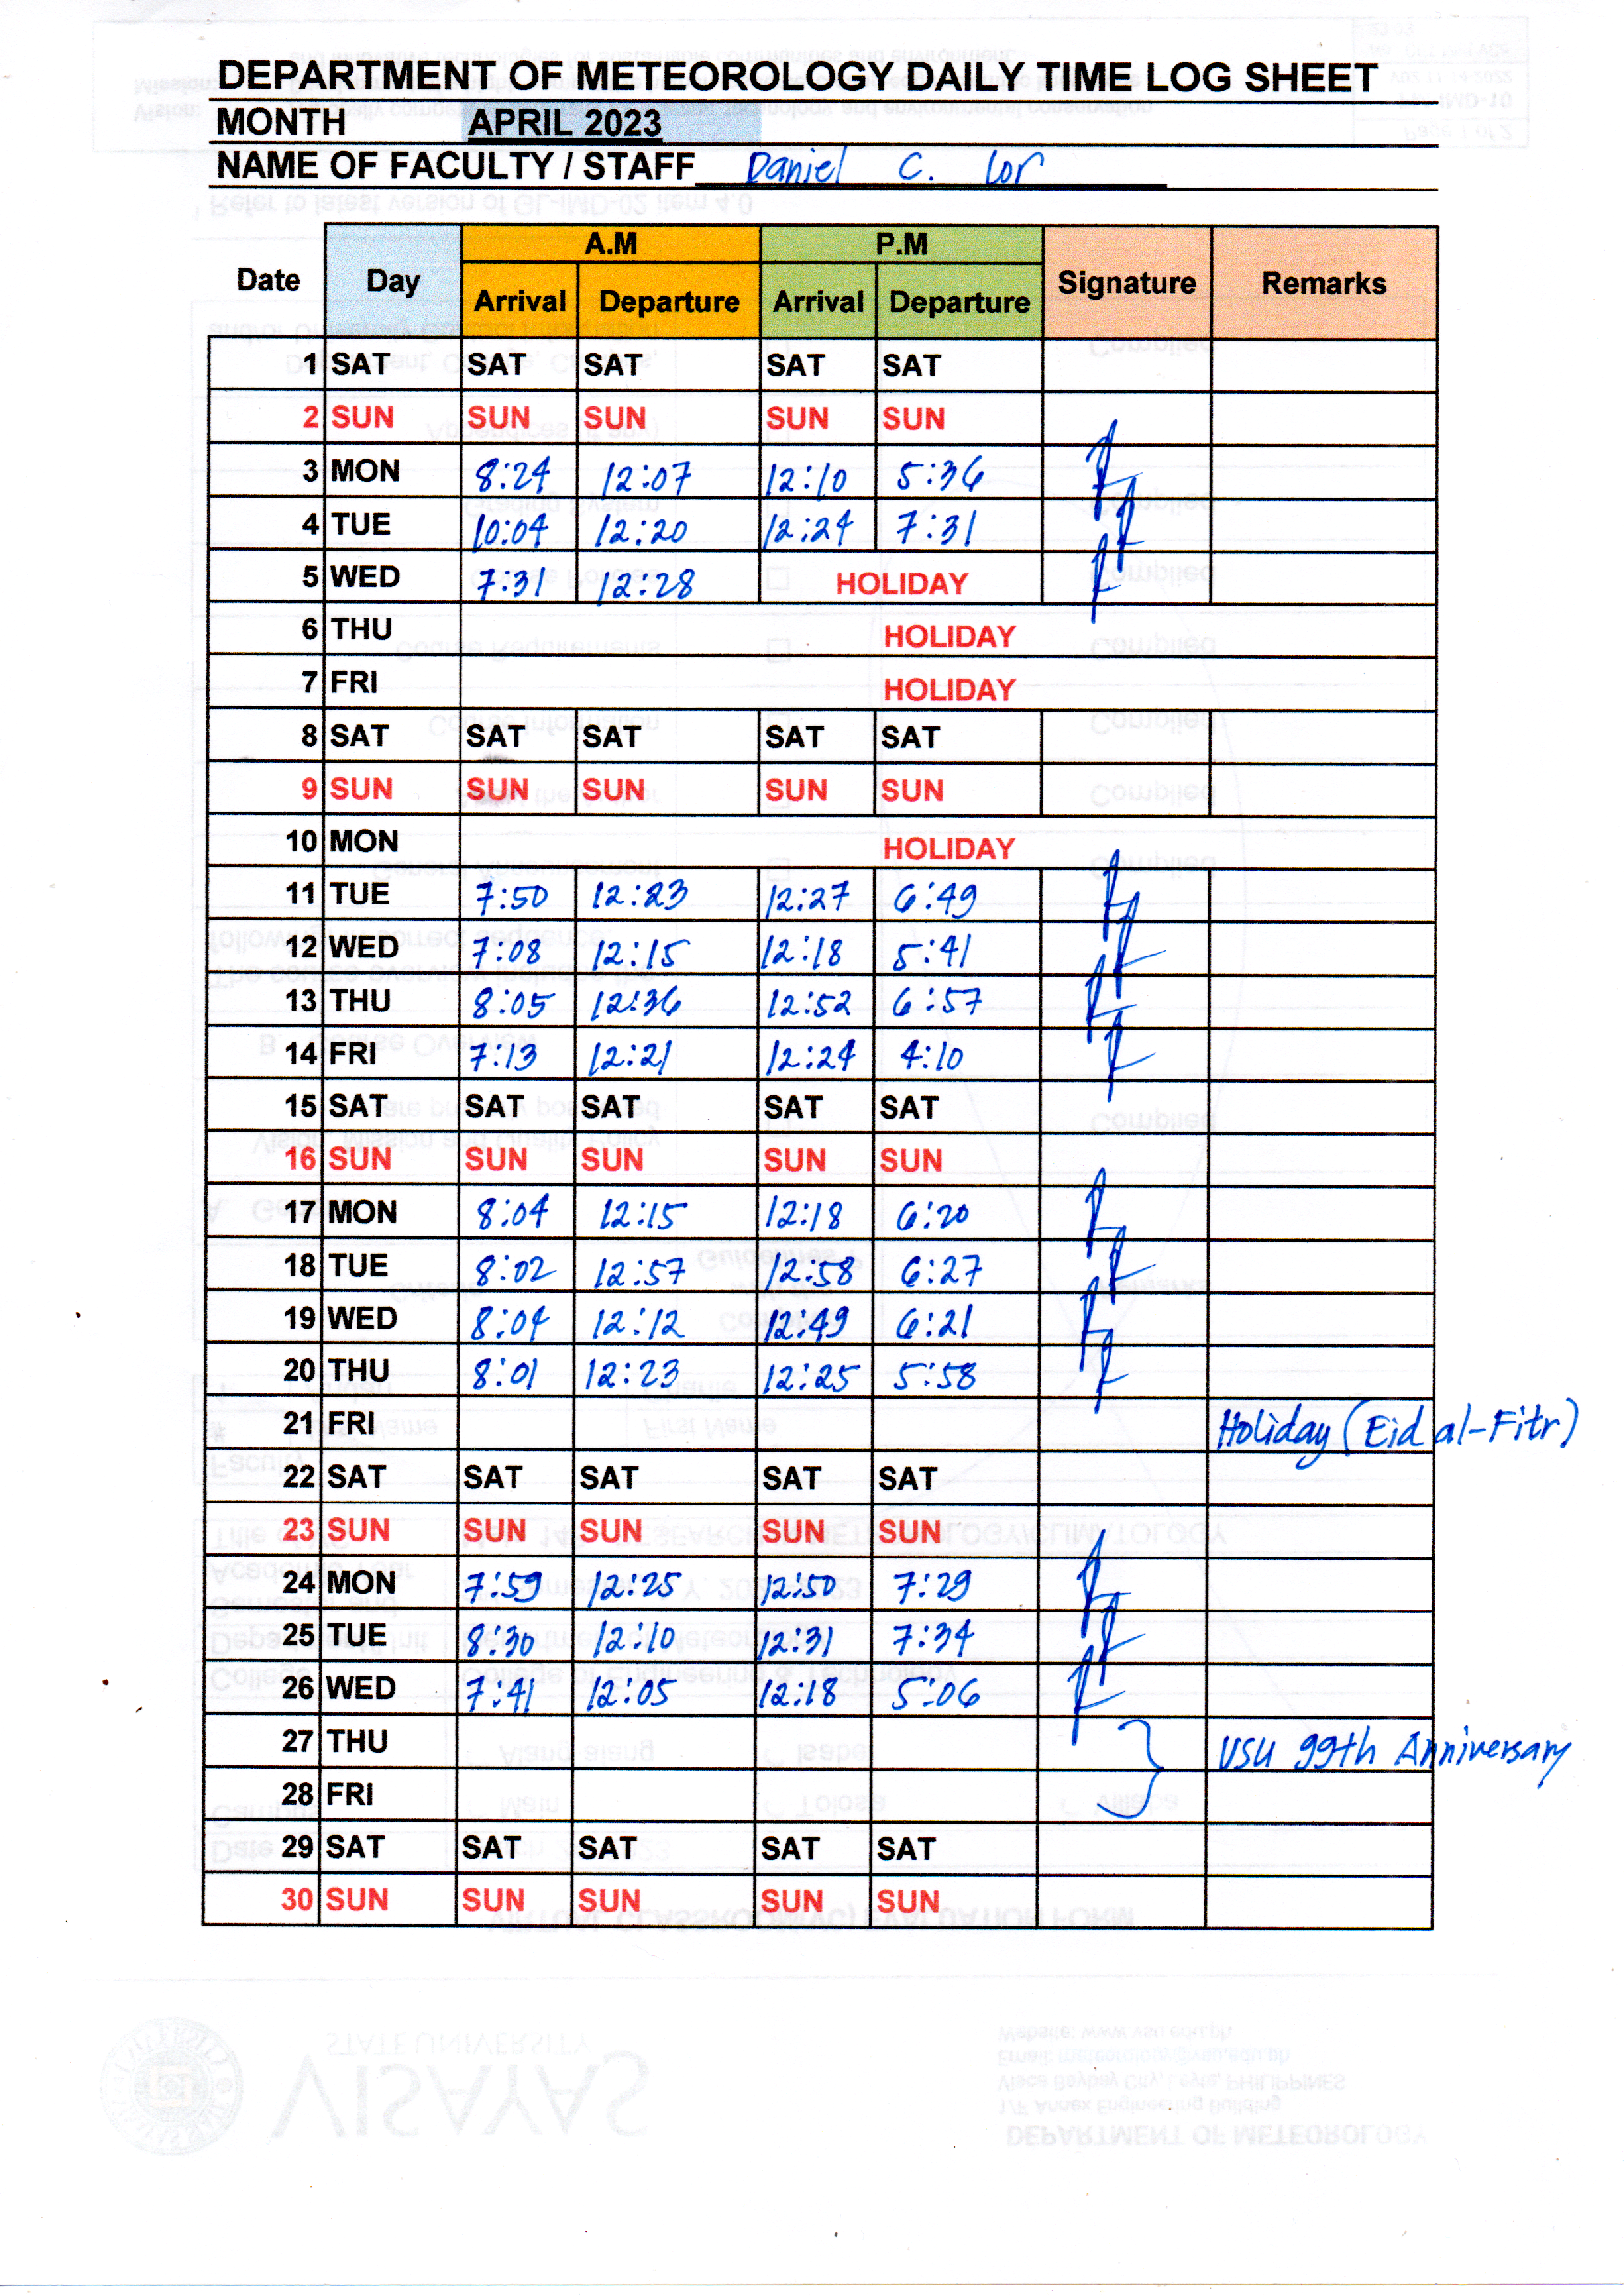 DEPARTMENT OF METEOROLOGY DAILY TIME LOG SHEET
MONTH APRIL 2023
NAME OF FACULTY / STAFF Daniel C. Lor
Date Day A.M P.M Signature Remarks
Arrival Departure Arrival Departure
1 SAT SAT SAT SAT SAT
2 SUN SUN SUN SUN SUN
3 MON 8:24 12:07 12:10 5:36
4 TUE 10:04 12:20 12:24 7:31
5 WED 7:31 12:28 HOLIDAY
6 THU HOLIDAY
7 FRI HOLIDAY
8 SAT SAT SAT SAT SAT
9 SUN SUN SUN SUN SUN
10 MON HOLIDAY
11 TUE 7:50 12:23 12:27 6:49
12 WED 7:08 12:15 12:18 5:41
13 THU 8:05 12:36 12:52 6:57
14 FRI 7:13 12:21 12:24 4:10
15 SAT SAT SAT SAT SAT
16 SUN SUN SUN SUN SUN
17 MON 8:04 12:15 12:18 6:20
18 TUE 8:02 12:57 12:58 6:27
19 WED 8:04 12:12 12:49 6:21
20 THU 8:01 12:23 12:25 5:58
21 FRI Holiday (Eid al-Fitr)
22 SAT SAT SAT SAT SAT
23 SUN SUN SUN SUN SUN
24 MON 7:59 12:25 12:50 7:29
25 TUE 8:30 12:10 12:31 7:34
26 WED 7:41 12:05 12:18 5:06
27 THU VSU 99th Anniversary
28 FRI
29 SAT SAT SAT SAT SAT
30 SUN SUN SUN SUN SUN